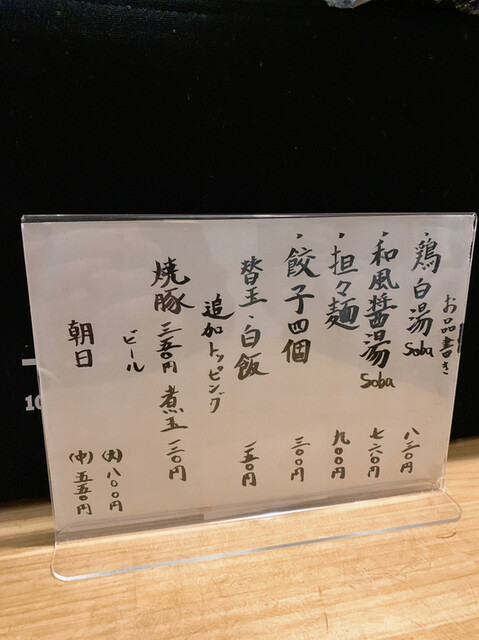 お品書き
・鶏白湯Soba 八三〇円
・和風醤湯Soba 七六〇円
・担々麺 九〇〇円
・餃子四個 三〇〇円
替玉・白飯 一五〇円
追加トッピング
焼豚 三五〇円 煮玉 一二〇円
ビール (大) 八〇〇円
朝日 (中) 五五〇円
10